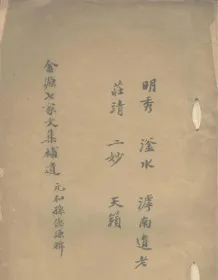 明秀 滏水 滹南遺老
莊靖 二妙 天籟
金源七家文集補遺 元和孫德謙輯